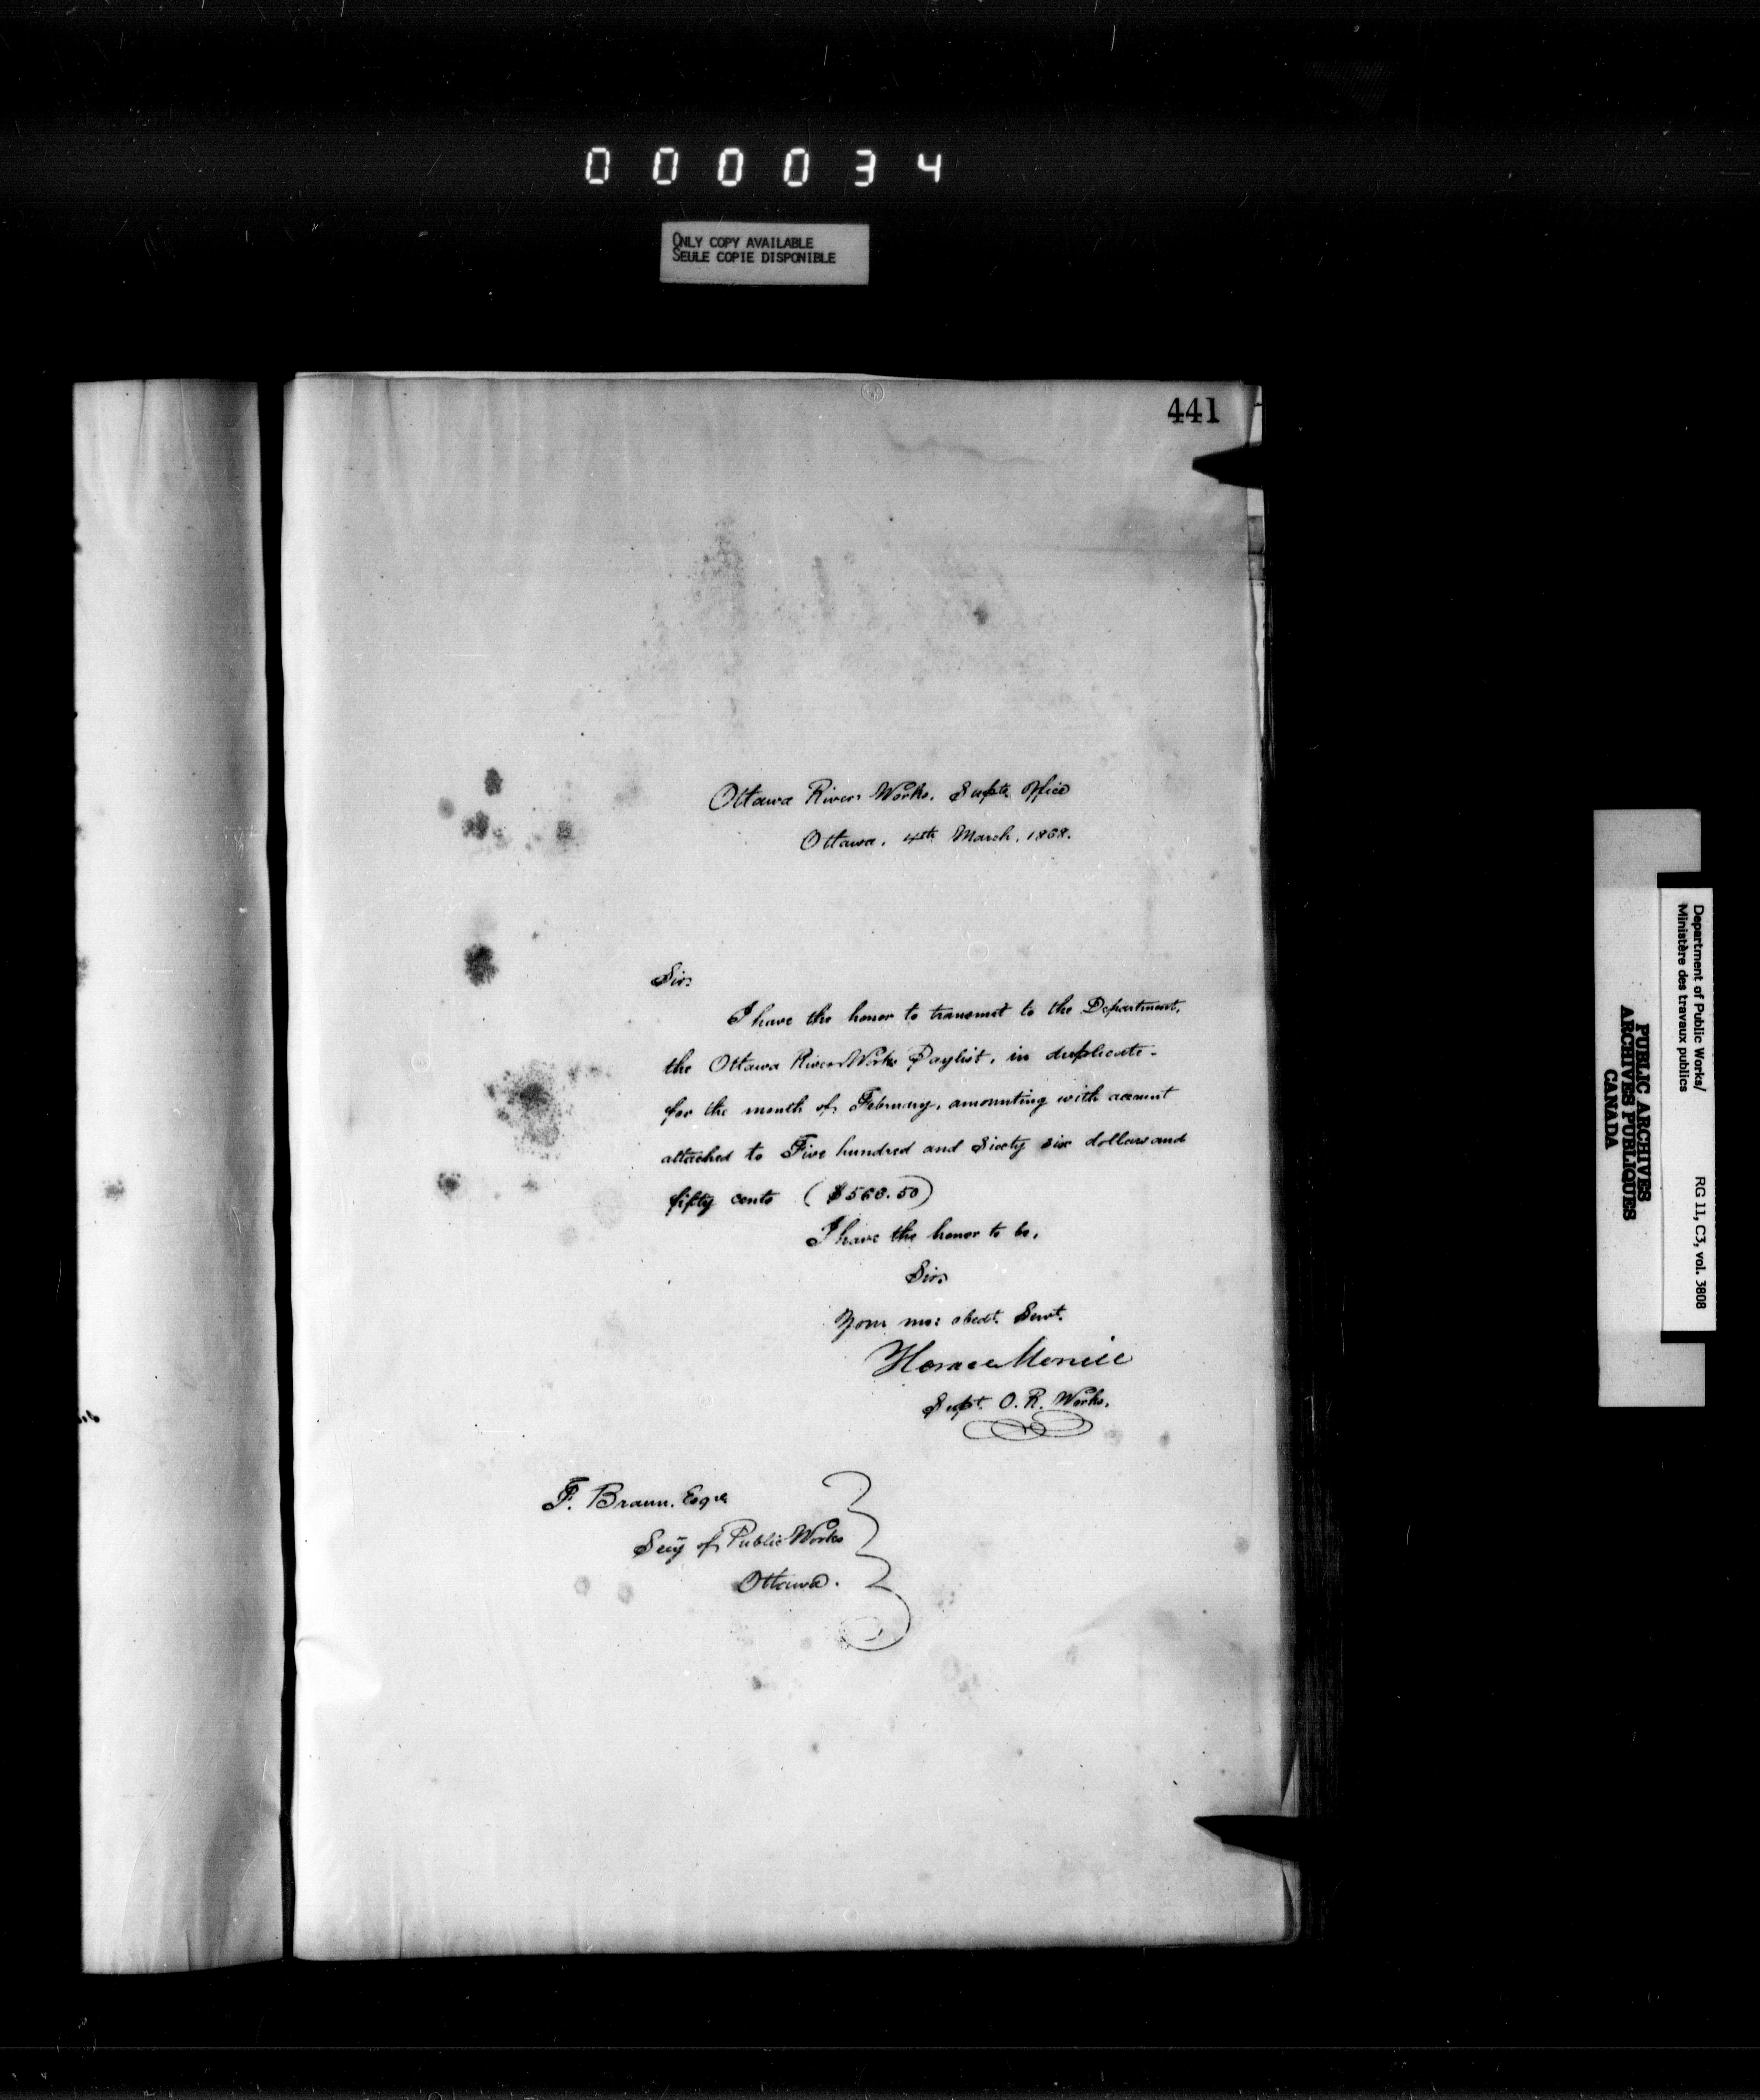 000034
ONLY COPY AVAILABLE
SEULE COPIE DISPONIBLE
441
Ottawa River Works. Supts. Office
Ottawa, 4th March, 1868.
Sir,
I have the honor to transmit to the Department,
the Ottawa River Works Paylist, in duplicate -
for the month of February, amounting with account
attached to Five hundred and Sixty six dollars and
fifty cents ($566.50)
I have the honor to be,
Sir,
Your mo: obedt. Servt.
Horace Merrill
Supt. O. R. Works.
F. Braun. Esqre
Secy of Public Works
Ottawa.
Department of Public Works/
Ministère des travaux publics
RG 11, C3, vol. 3808
PUBLIC ARCHIVES
ARCHIVES PUBLIQUES
CANADA